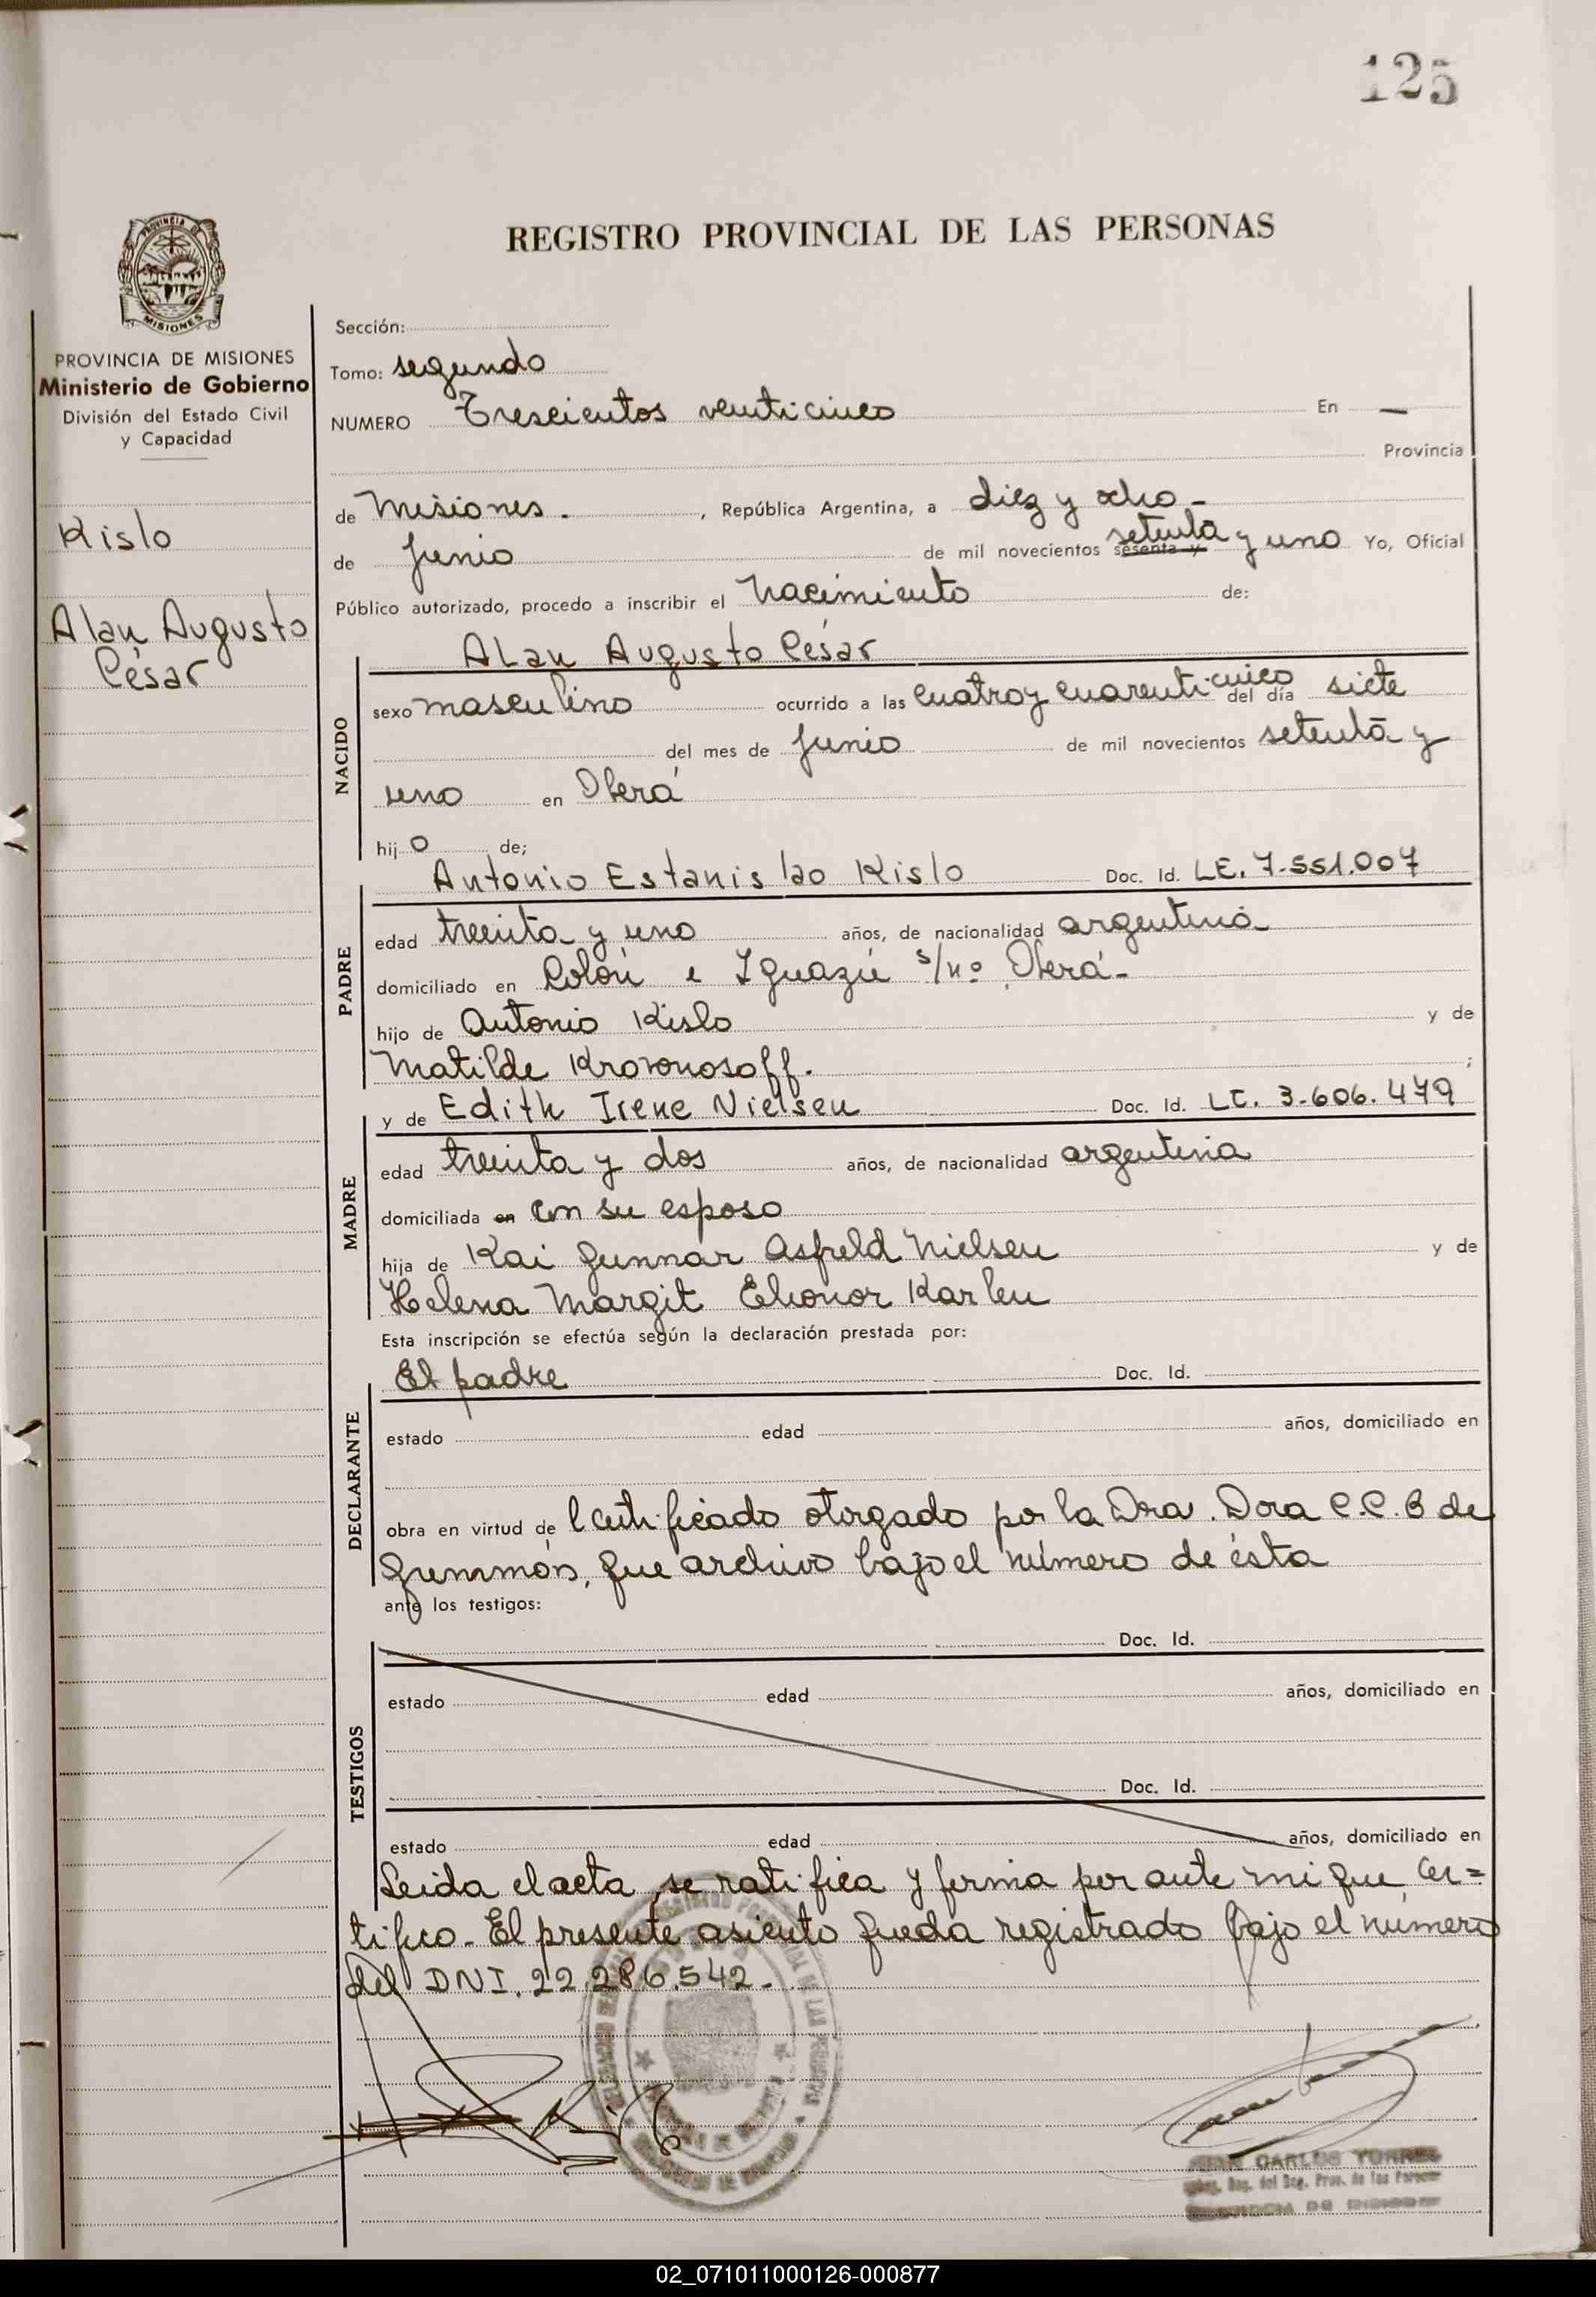 125
REGISTRO PROVINCIAL DE LAS PERSONAS
MISIONES
PROVINCIA DE MISIONES
Ministerio de Gobierno
División del Estado Civil
y Capacidad
Kislo
Alan Augusto
César
Sección:
Tomo: segundo
NUMERO Trescientos venticinco En —
Provincia
de Misiones. , República Argentina, a diez y ocho -
de Junio de mil novecientos sesenta y setenta y uno Yo, Oficial
Público autorizado, procedo a inscribir el nacimiento de:
Alan Augusto César
NACIDO
sexo masculino ocurrido a las cuatro y cuarenticinco del día siete
del mes de Junio de mil novecientos setenta y
uno en Oberá
hijo de;
Antonio Estanislao Kislo Doc. Id. LE. 7.551.007
PADRE
edad treinta y uno años, de nacionalidad argentina
domiciliado en Colón e Iguazú s/nº Oberá-
hijo de Antonio Kislo y de
Matilde ;
y de Edith Irene Nielsen Doc. Id. LC. 3.606.479
MADRE
edad treinta y dos años, de nacionalidad argentina
domiciliada en con su esposo
hija de Kai Gunnar Nielsen y de
Helena Margit Karlen
Esta inscripción se efectúa según la declaración prestada por:
El padre Doc. Id.
DECLARANTE
estado edad años, domiciliado en
obra en virtud de certificado otorgado por la Dra. Dora C.C. B de
que archivo bajo el número de ésta
ante los testigos:
TESTIGOS
Doc. Id.
estado edad años, domiciliado en
Doc. Id.
estado edad años, domiciliado en
Leida el acta, se ratifica y firma por ante mi que, cer=
tifico. El presente asiento queda registrado bajo el numero
del DNI. 22.286.542.-
CARLOS TORRES
02_071011000126-000877